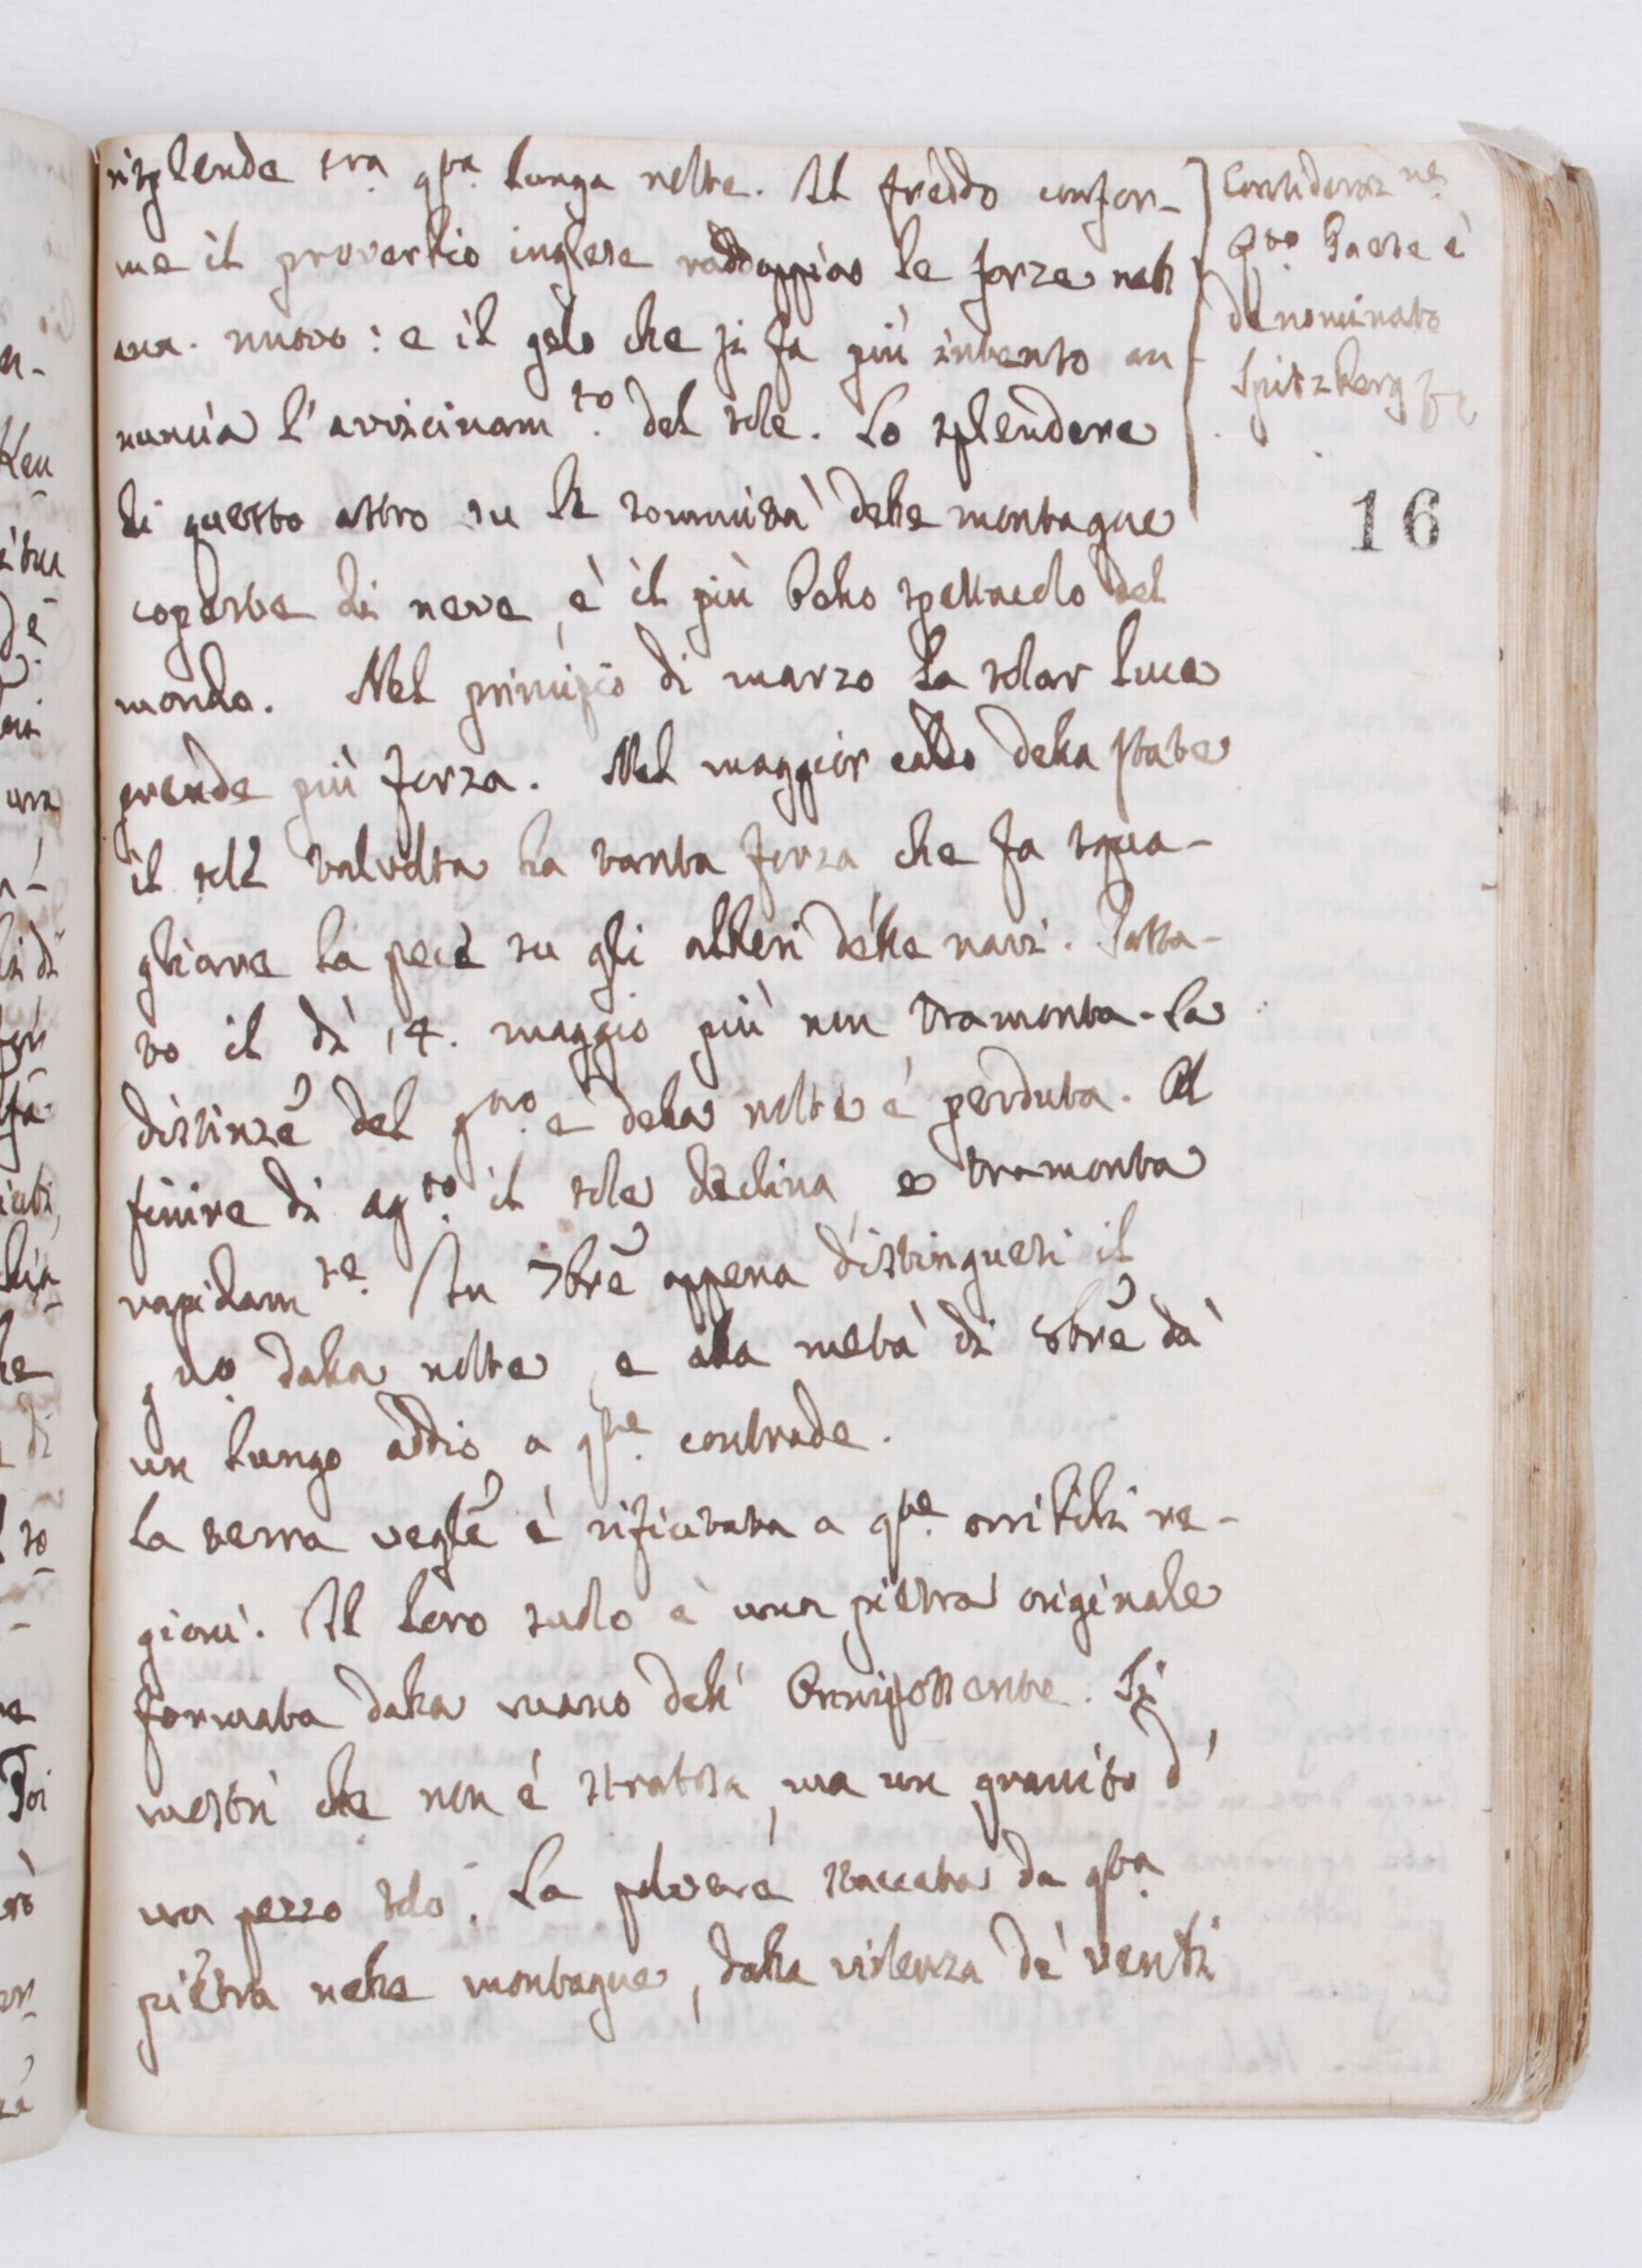 risplende tra qta lunga notte. Il freddo confor-
me il proverbio inglese raddoppia le forze nell'
an. nuovo: e il gelo che si fa più intento an-
nuncia l'avvicinam.to del sole. Lo splendere
di questo astro su le sommità delle montagne
coperte di neve, è il più bello spettacolo del
mondo. Nel principio di marzo la solar luce
prende più forza. Nel maggior caldo della state
il sole talvolta ha tanta forza che fa squa-
gliare la pece su gli alberi delle navi. Passa-
to il dì 14. maggio più non tramonta. La
distinzē del g.no e della notte è perduta. Al
finire di ag.to il sole declina, e tramonta
rapidam.te In 7brē appena distinguesi il
g.no dalla notte, e alla metà di 8brē dà
un lungo addio a q.te contrade.
La terra veglē è rifiutata a q.te orribili re-
gioni. Il loro suolo è una pietra originale
formata dalla mano dell' Onnipottente. Si
mostri che non è stratosa, ma un granito d'
un pezzo solo. La polvere staccata da q.ta
pietra nelle montagne, dalla violenza de' venti
Considerazne
Qto Paese è
denominato
Spitzberg
16